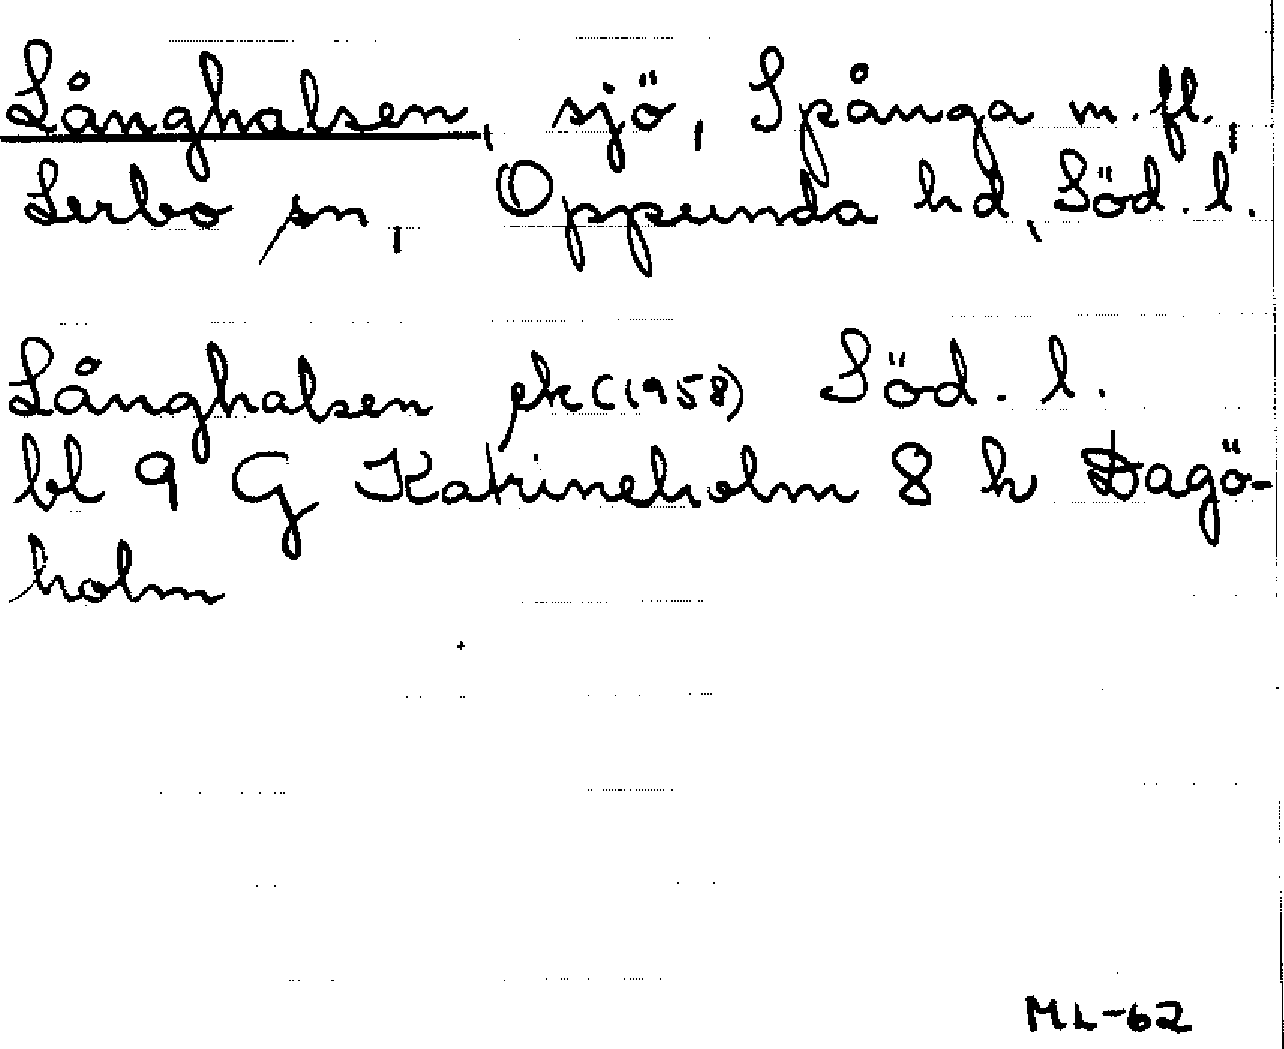 Långhalsen, sjö, Spånga m.fl.,
Lerbo sn, Oppunda hd, Söd. l.
Långhalsen ek (1958) Söd. l.
bl 9 G Katrineholm 8 h Dagö-
holm
ML-62